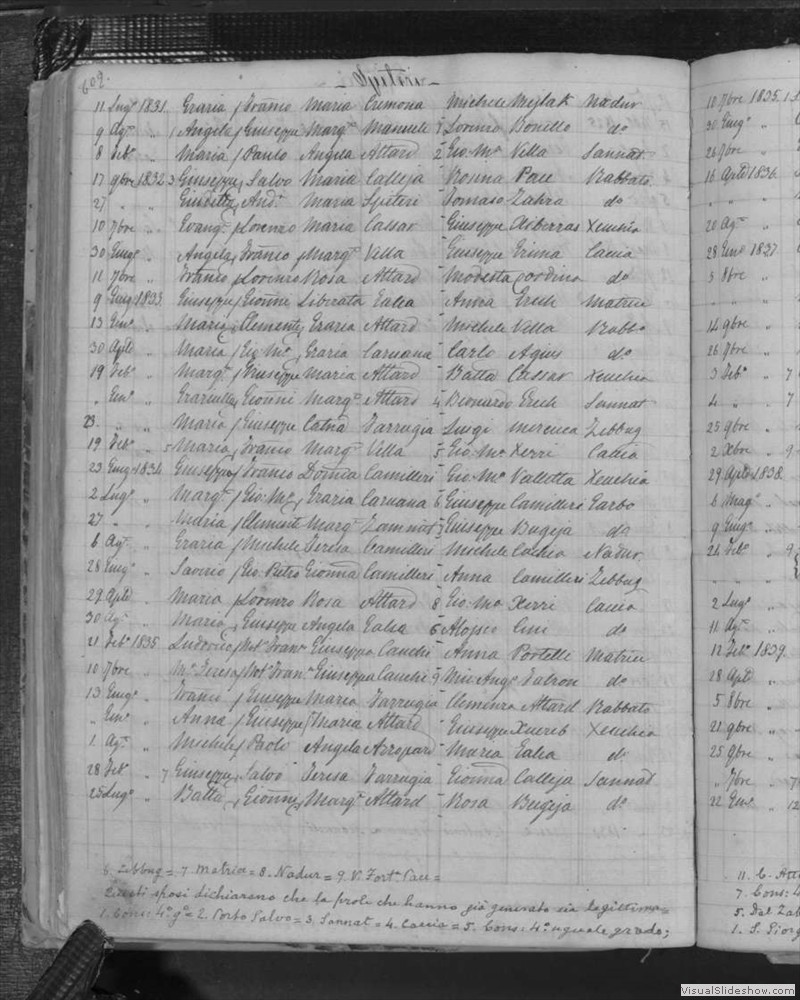 602.
- Spiteri -
11 Lug° 1831. Grazia / Franco Maria Cremona - Michele Mejlak Nadur
9 Ag° " 1 Angela / Giuseppe Marg.ta Manueli Lorenzo Bonello do
8 Feb° " Maria / Paulo Angela Attard 2 Gio: Ma Vella Sannat
17 9bre 1832. 3 Giuseppe / Salvo Maria Calleja - Rosina Pace Rabbato
27 " " Giuditta / And. Maria Spiteri - Tomaso Zahra do
10 7bre " Evang. / Lorenzo Maria Cassar - Giuseppe Xiberras Xeuchia
30 " Angela / Franco Marg.ta Vella - Giuseppe Grima Caccia
11 7bre " Franco / Lorenzo Rosa Attard - Modesta Cordina do
9 1833. Giuseppe / Gionni Liberata Galea - Anna Grech Matrice
13 Gen° " Maria / Clemente Grazia Attard - Michele Vella Rabbo
30 Aple " Maria / Gio: Ma Grazia Caruana - Carlo Agius do
19 Feb° " Marg.ta / Giuseppe Maria Attard - Batta Cassar Xeuchia
" Gen° " Graziulla / Gionni Marg.ta Attard 4 Bernardo Grech Sannat
23. " " Maria / Giuseppe Catna Farrugia - Luigi Mercieca Zebbug
19 Feb° " 5 Maria / Franco Marg.ta Vella 5 Gio: Ma Xerri Caccia
23 1834. Giuseppe / Franco Domca Camilleri - Gio: Ma Valletta Xeuchia
2 Lug° " Marg.ta / Gio: Ma Grazia Caruana 6 Giuseppe Camilleri Garbo
27 " " Maria / Clemente Marg.ta Zammit Giuseppe Bugeja do
6 Ag° " Grazia / Michele Teresa Camilleri - Michele Nadur.
28 " Saverio / Gio: Pietro Gionna Camilleri - Anna Camilleri Zebbug
29 Aple " Maria / Lorenzo Rosa Attard 8 Gio: Ma Xerri Caccia
30 Ag° " Maria / Giuseppe Angela Galea 6 Aloiseo do
21 Feb° 1835 Ludovico / Not. Fran. Giuseppa Cauchi - Anna Portelli Matrice
10 7bre " Ma Teresa / Not. Fran. Giuseppa Cauchi 9 Ang° do
13 " Franco / Giuseppe Maria Farrugia - Clemenza Attard Rabbato
" Gen° " Anna / Giuseppe / Maria Attard - Giuseppe Xuereb Xeuchia
1. Ag° " Michele / Paolo Angela Azzopardi - Maria Galea do
28 Feb° " 7 Giuseppe / Salvo Teresa Farrugia - Gionna Calleja Sannat
25 Lug° " Batta / Gionni Marg.ta Attard - Rosa Bugeja do
6. Zebbug = 7. Matrice = 8. Nadur = 9. V. Forta =
Questi sposi dichiarano che la prole che hanno già generato sia legittima =
1. Cons: 4° g° = 2. Porto Salvo = 3. Sannat = 4. Caccia = 5. Cons: 4° uguale grado;
10 7bre 1835. 1
30 "
26 7bre "
16 Aple 1836.
" " "
20 Ag° "
28 Gen° 1837.
3 8bre "
" " "
14 9bre "
26 7bre "
3 Feb° " 7
4 " " 7
25 9bre "
2 Xbre " 9
29 Aple 1838.
6 Mag° "
9 "
24 Feb° " 9
" " "
2 Lug° "
11 Ag° "
12 Feb° 1839.
18 Aple "
5 8bre "
21 9bre "
25 9bre "
" 7bre " 7
22 Gen° " 12
11. C.
7. Cons: 4
5. Dal
1. S. Giorg
VisualSlideshow.com